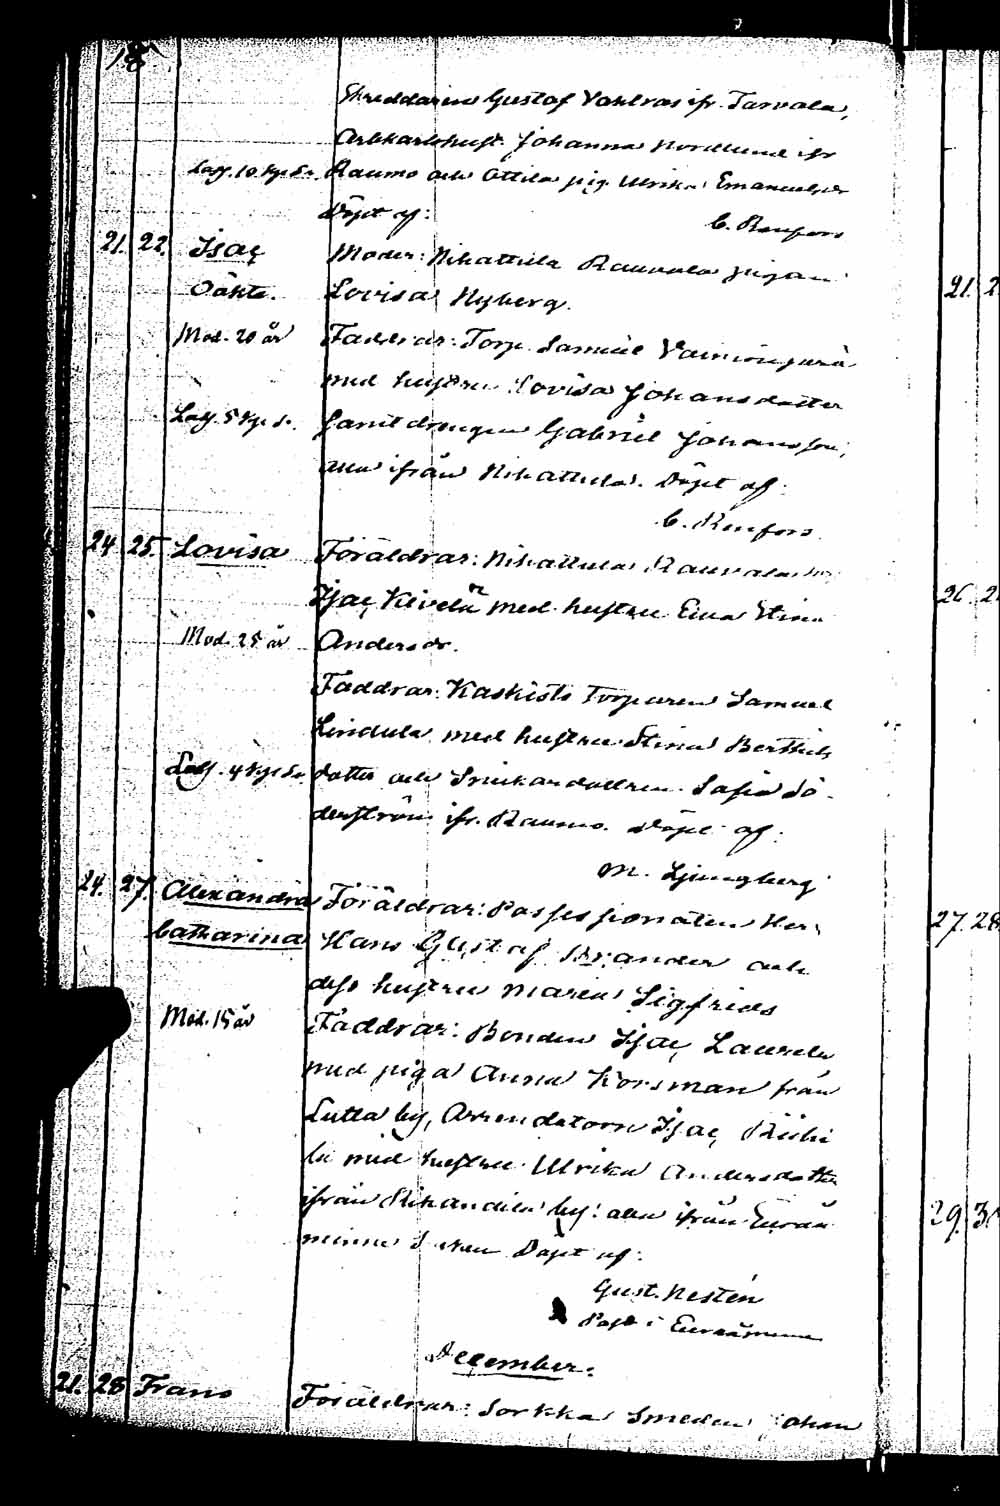 18
Skreddaren Gustaf Vahlros ifr. Tarvola,
Arbkarlshust. Johanna Nordlund ifr
Lagf. 10 kpr Sr. Raumo och Ottila pig. Ulrika Emanuelsdr
Döpt af:
C. Renfors
21. 22. Isaç Moder: Nihattula Rauvola pigan
Oäkta. Lovisa Nyberg.
Mod. 20 år Faddrar: Torp. Samuel Vainionperä
med hustru Lovisa Johansdotter
Lagf. 5 kpr Sr. samt drengen Gabriel Johansson,
alla ifrån Nihattula. Döpt af:
C. Renfors
24 25 Lovisa Föräldrar: Nihattula Rauvola
Isaç Kivelä med hustru Eva Stina
Mod. 25 år Andersdr.
Faddrar: Kaskists Torparen Samuel
Lindula med hustru Stina Bertills
Lagf. 4 kpr Sr. dotter och Snickardottren Sofia Sö-
derström ifr. Raumo. Döpt af:
M. Ljungberg
24. 27. Alexandra Föräldrar: Possessionaten Herr
Catharina Hans Gustaf Brander och
dess hustru Maria Sigfrids
Mod. 15 år Faddrar: Bonden Isaç Laurila
med piga Anna Korsman från
Lutta by, Arrendatorn Isaç
med hustru Ulrika Andersdotter
ifrån by: alla ifrån Eurå
minne Döpt af:
Gust. Nestén
Past. i Euraåminne
December.
21. 28 Frans Föräldrar: Sorkka Smeden Johan
21. 2
26. 2
27. 28
29. 3